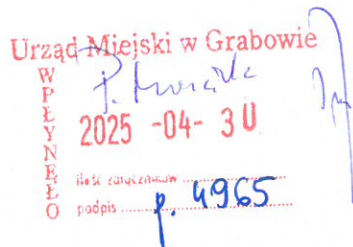 Urząd Miejski w Grabowie
WPŁYNĘŁO
P.
2025 -04- 30
ilość załączników
podpis p. 4965